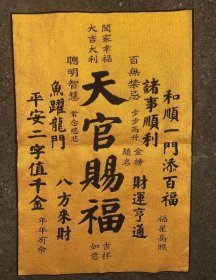 和順一門添百福
福星高照
諸事順利
財運亨通
百無禁忌
步步高升
金榜
題名
天官賜福
吉祥
如意
八方來財
闔家幸福
大吉大利
聰明智慧
常念感恩
魚躍龍門
平安二字值千金
年年有余